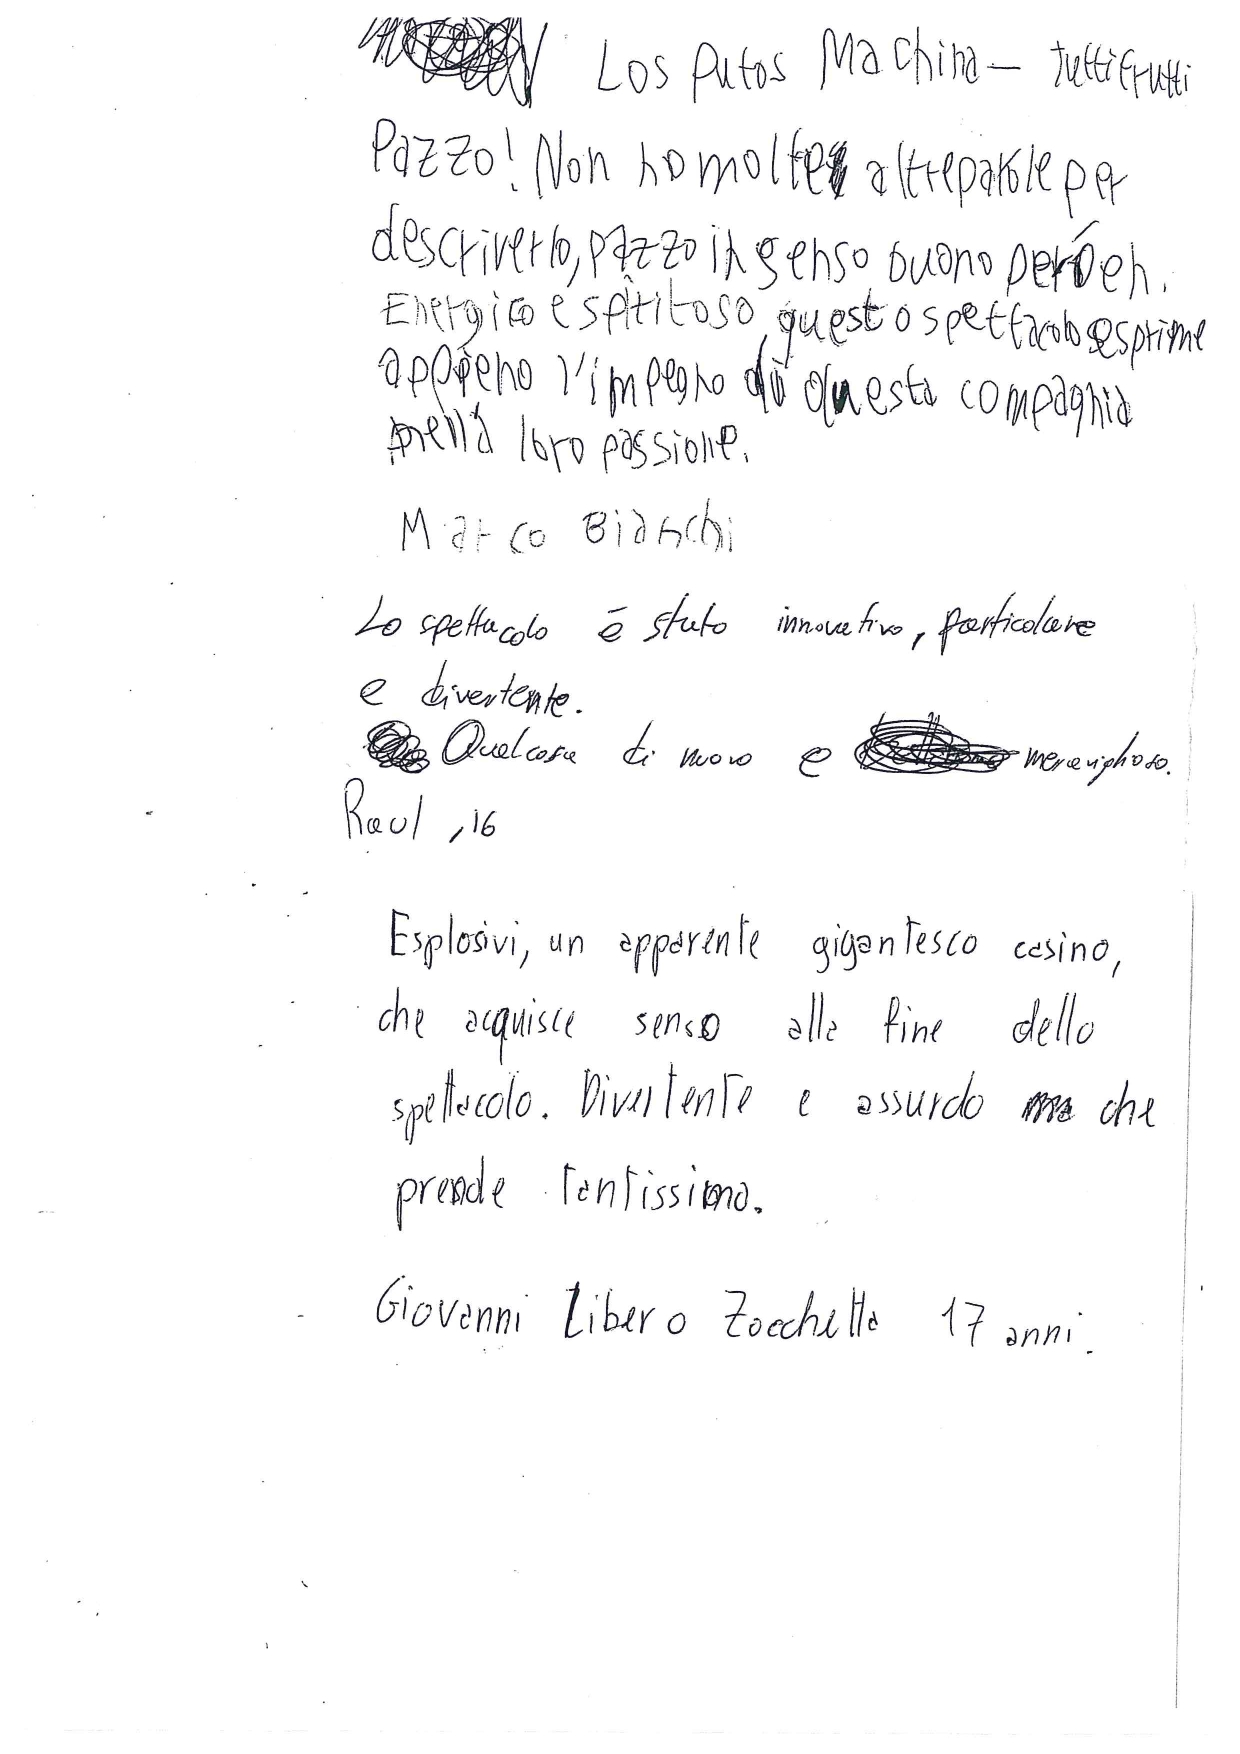 Los Putos Machina – tuttifrutti
Pazzo! Non ho molte altre parole per
descriverlo, pazzo in senso buono però eh.
Energico e spiritoso, questo spettacolo esprime
appieno l'impegno di questa compagnia
nella loro passione.
Marco Bianchi
Lo spettacolo è stato innovativo, particolare
e divertente.
Qualcosa di nuovo e meraviglioso.
Raul, 16
Esplosivi, un apparente gigantesco casino,
che acquisce senso alla fine dello
spettacolo. Divertente e assurdo che
prende tantissimo.
Giovanni Libero Zocchella 17 anni.